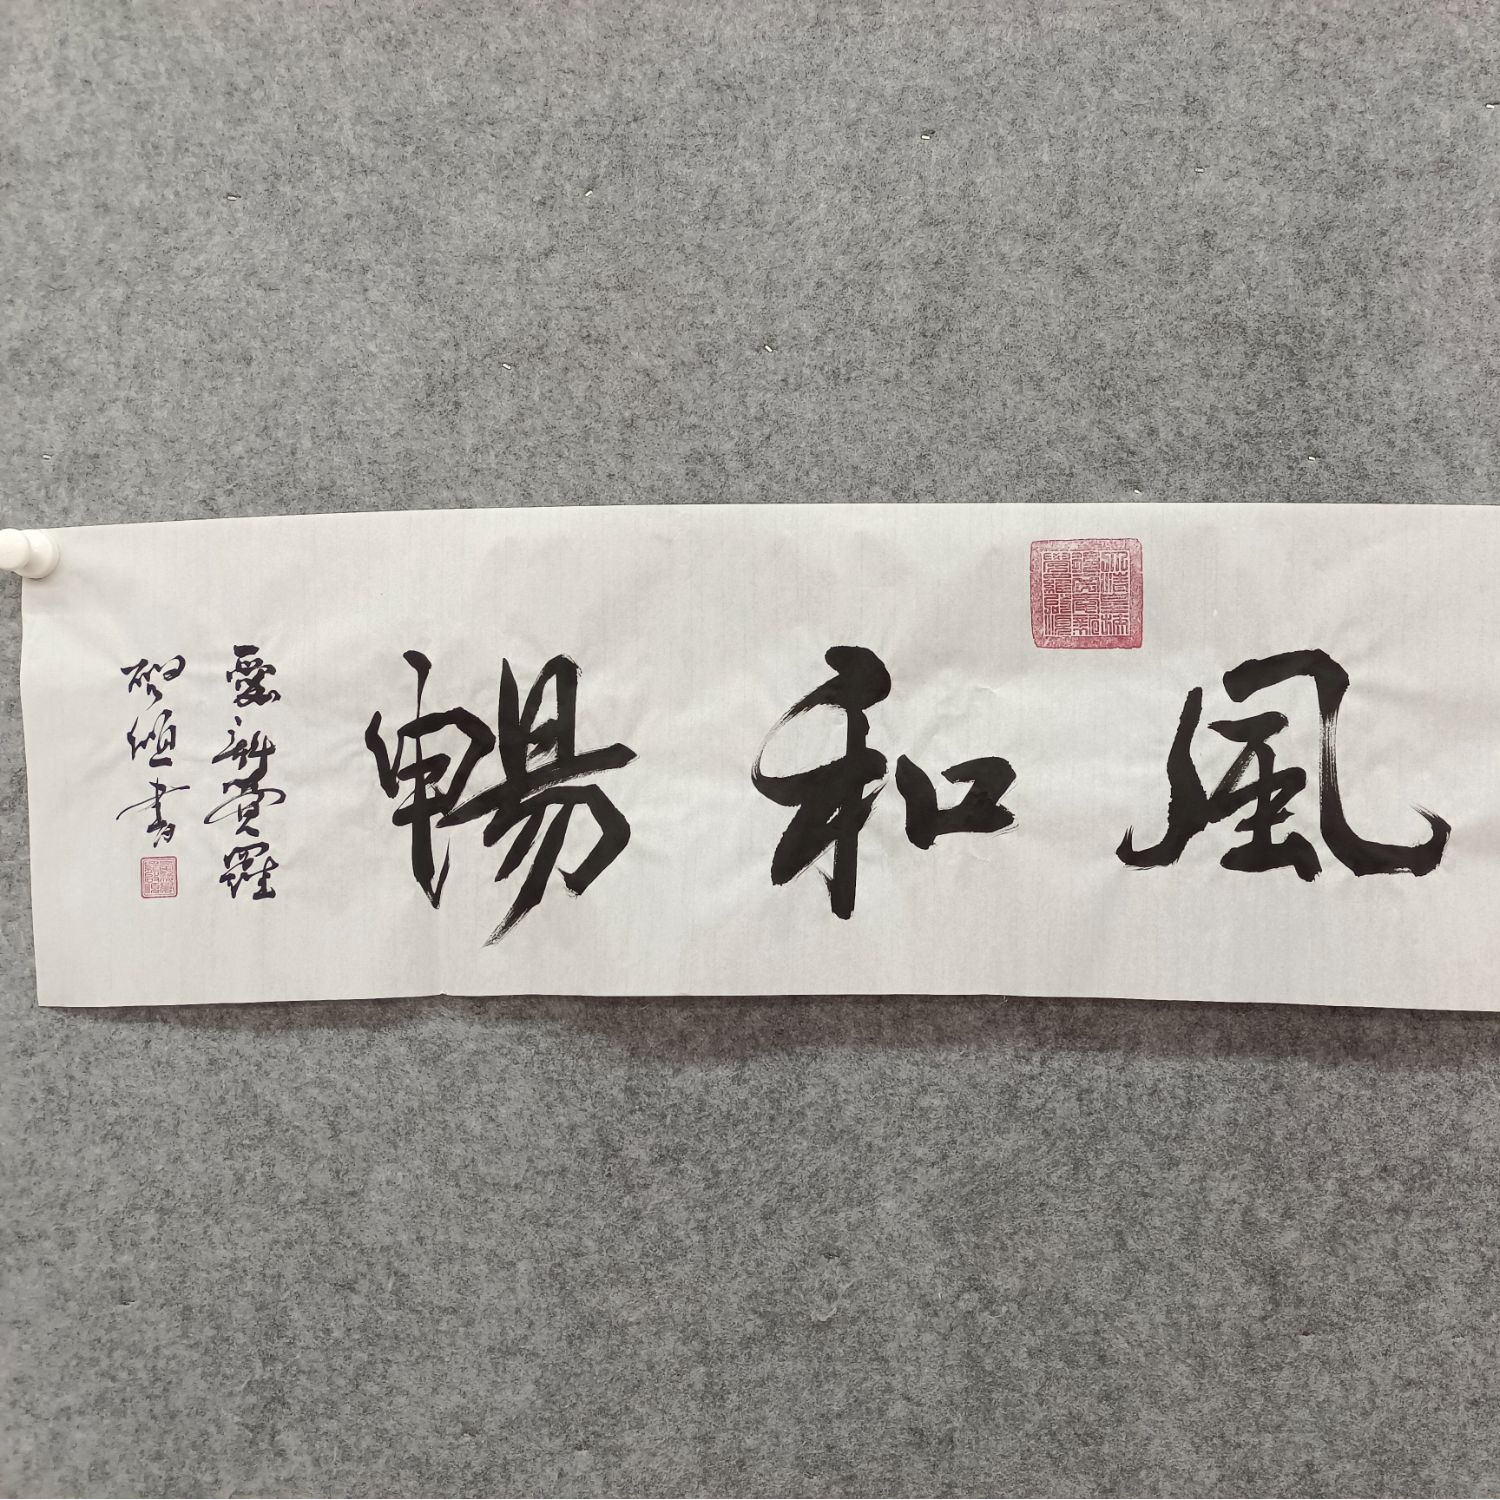 風和暢
愛新覺羅
書